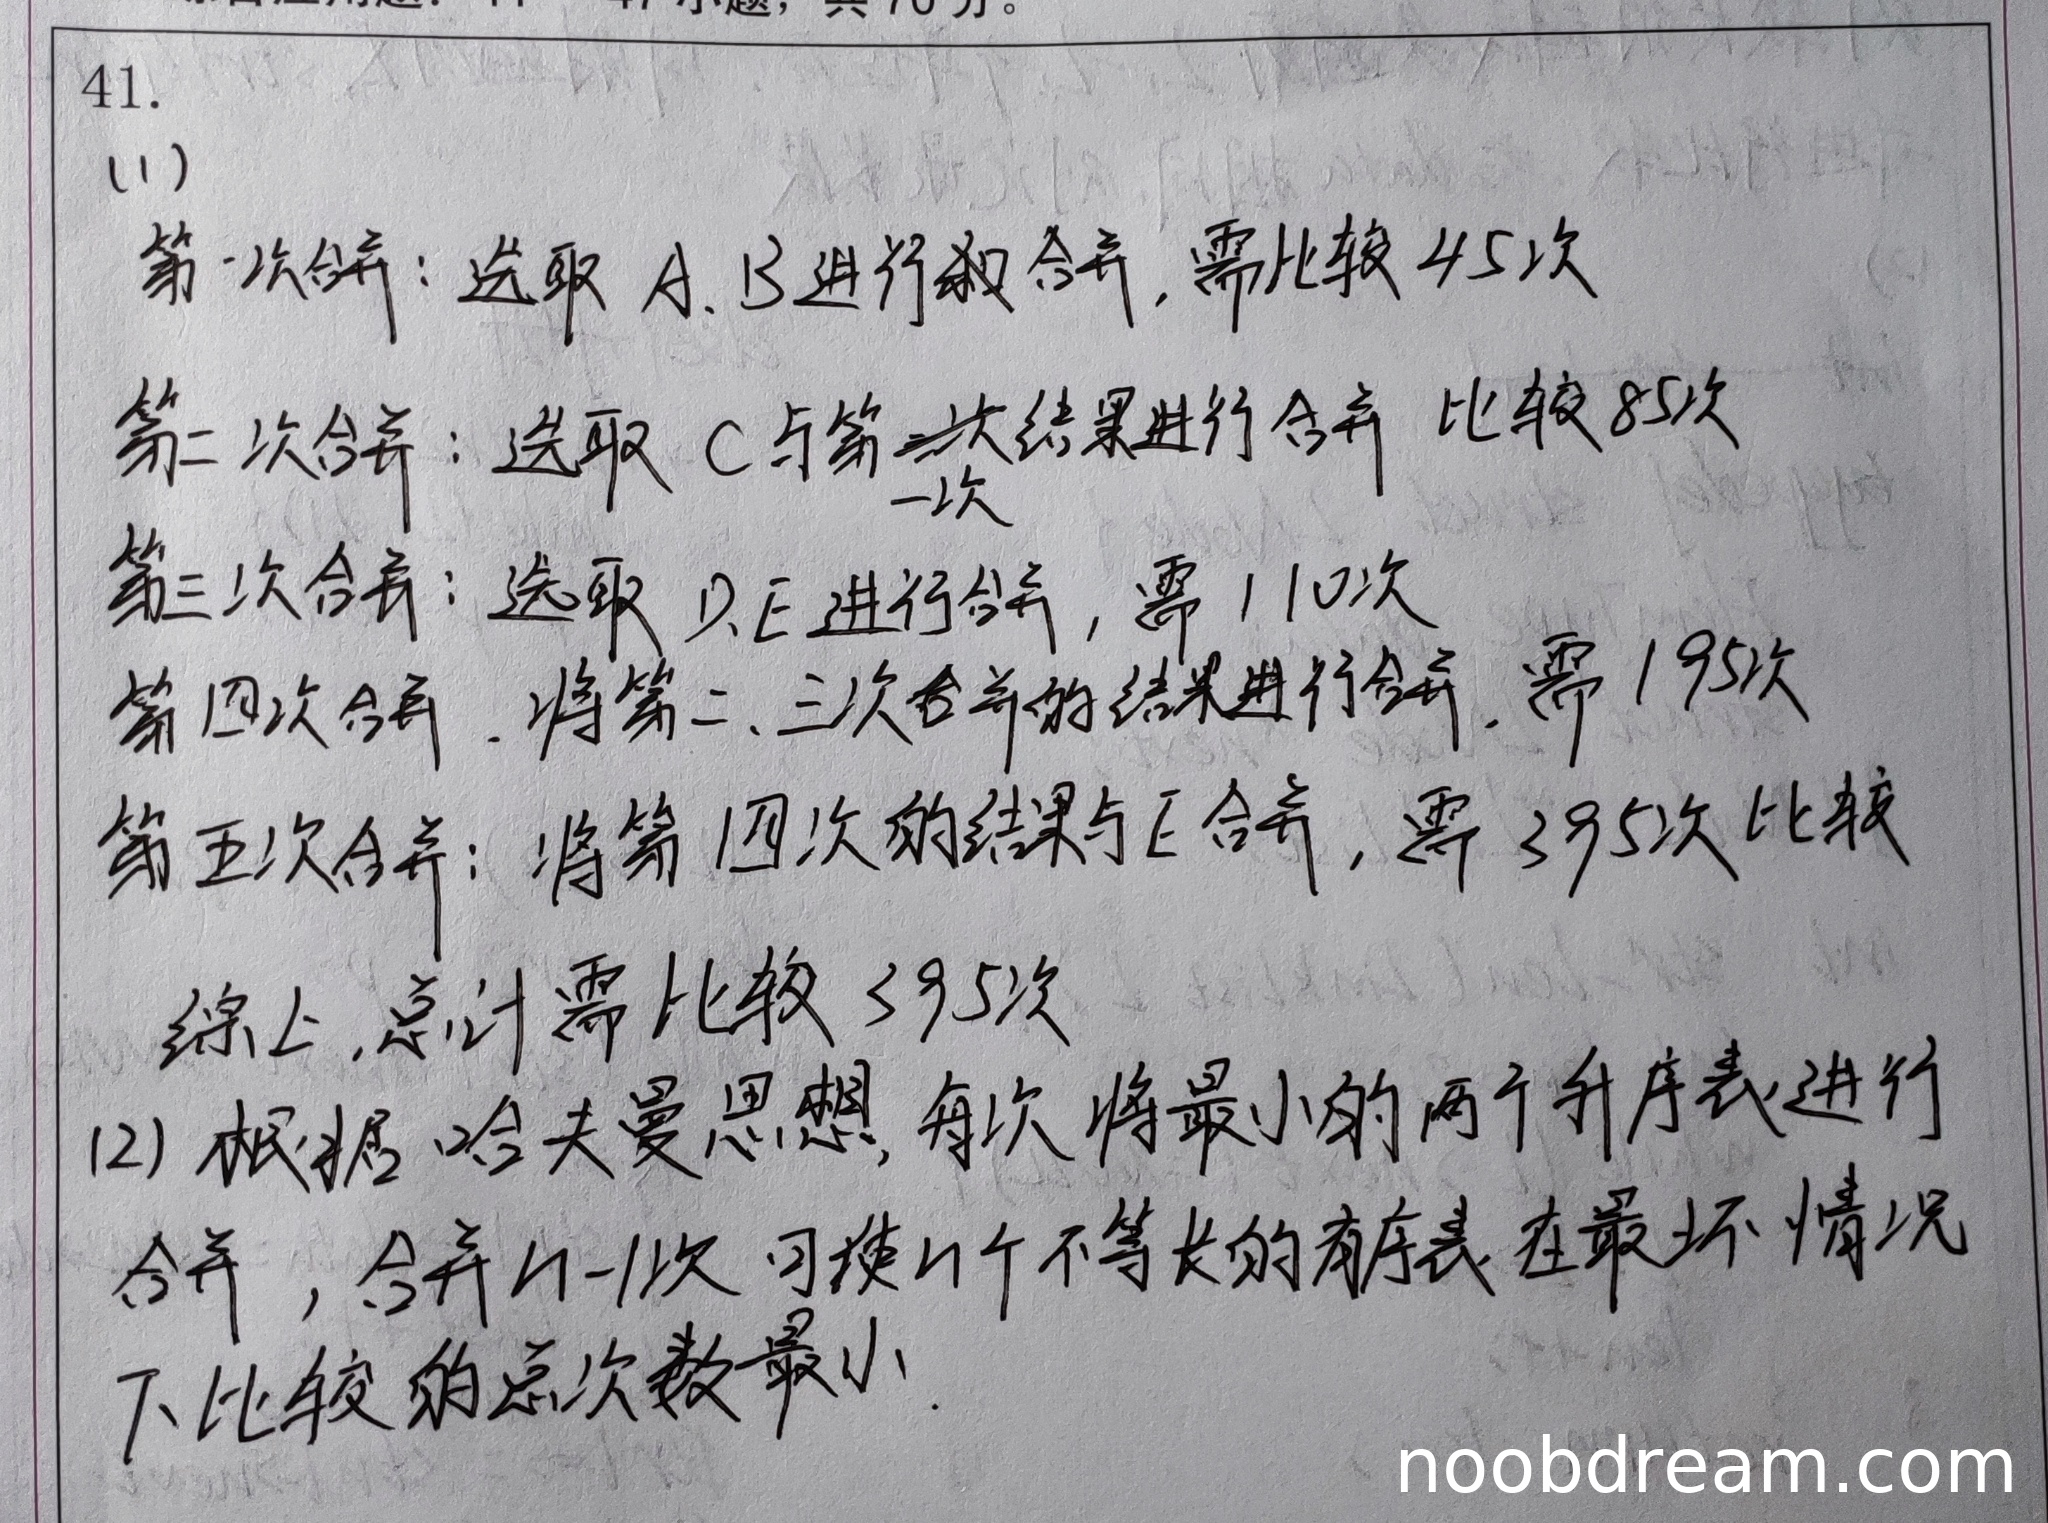 41.
(1)
第一次合并：选取 A、B进行合并，需比较45次
第二次合并：选取 C与第一次结果进行合并 比较85次
第三次合并：选取 D、E进行合并，需110次
第四次合并、将第二、三次合并的结果进行合并、需195次
第五次合并：将第四次的结果与E合并，需395次比较
综上，总计需比较395次
(2) 根据哈夫曼思想，每次将最小的两个升序表进行
合并，合并n-1次可使n个不等长的有序表在最坏情况
下比较的总次数最小.
noobdream.com